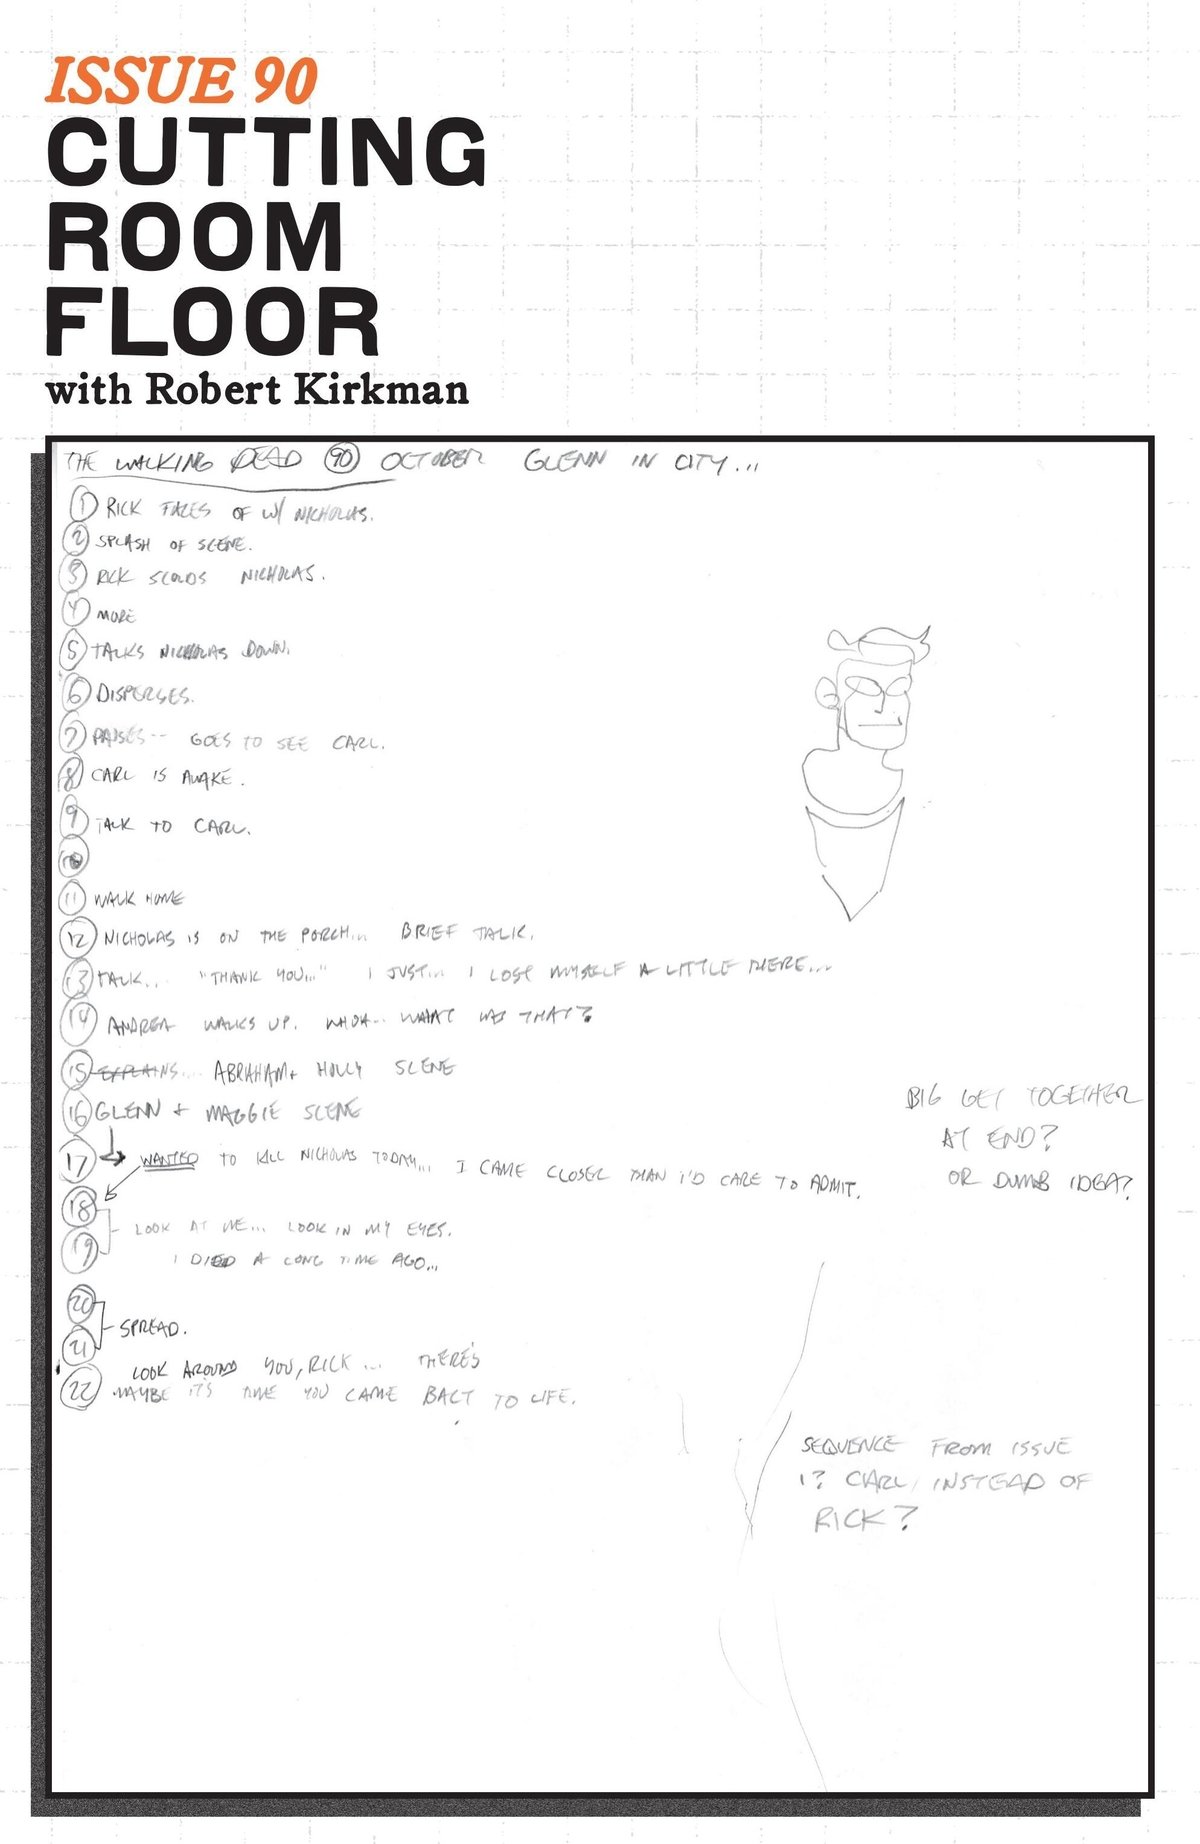 ISSUE 90
CUTTING
ROOM
FLOOR
with Robert Kirkman
THE WALKING DEAD 90 OCTOBER GLENN IN CITY...
1 RICK FACES OF W/ NICHOLAS.
2 SPLASH OF SCENE.
3 RICK SCOLDS NICHOLAS.
4 MORE
5 TALKS NICHOLAS DOWN.
6 DISPERSES.
7 PAUSES-- GOES TO SEE CARL.
8 CARL IS AWAKE.
9 TALK TO CARL.
10
11 WALK HOME
12 NICHOLAS IS ON THE PORCH... BRIEF TALK.
13 TALK... "THANK YOU..." I JUST... I LOSE MYSELF A LITTLE THERE...
14 ANDREA WALKS UP. WHOA... WHAT WAS THAT?
15 EXPLAINS... ABRAHAM + HOLLY SCENE
16 GLENN + MAGGIE SCENE
BIG GET TOGETHER
AT END?
OR DUMB IDEA?
17 WANTED TO KILL NICHOLAS TODAY... I CAME CLOSER THAN I'D CARE TO ADMIT.
18
LOOK AT ME... LOOK IN MY EYES.
19
I DIED A LONG TIME AGO...
20
SPREAD.
21
LOOK AROUND YOU, RICK... THERE'S
22 MAYBE IT'S TIME YOU CAME BACT TO LIFE.
SEQUENCE FROM ISSUE
1? CARL, INSTEAD OF
RICK?